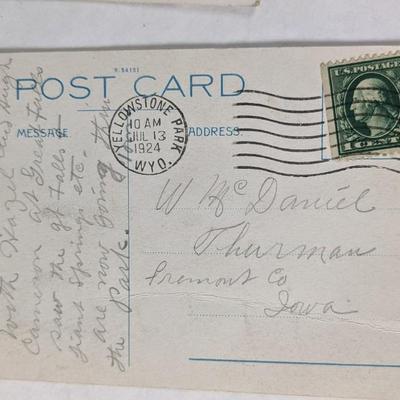 R-54151
POST CARD
MESSAGE
ADDRESS.
YELLOWSTONE PARK,
10 AM
JUL 13
1924
WYO.
U.S. POSTAGE
1 CENT 1
W McDaniel
Thurman
Fremont Co
Iowa
with Hazel and Hugh
Cameron at Great Falls
saw the gt Falls -
Giant Springs etc -
are now going thru
the Park.